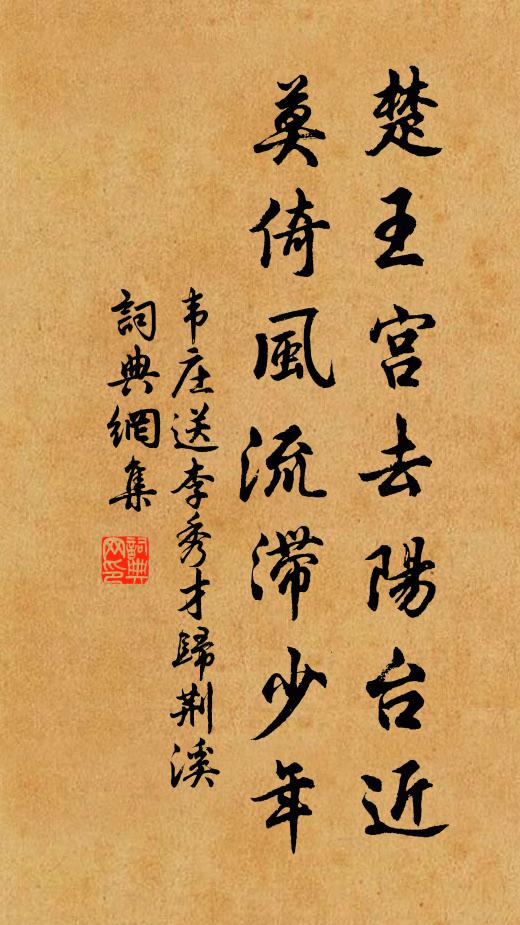 楚王宫去陽台近
莫倚風流滞少年
韦庄送李秀才歸荆溪
詞典網集
詞典网印